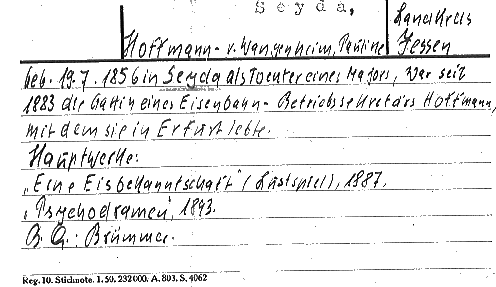 Seyda,
Landkreis
Hoffmann-v. Wangenheim, Pauline
Jessen
geb. 19.7. 1856 in Seyda als Tochter eines Majors, war seit
1883 die Gattin eines Eisenbahn-Betriebssekretärs Hoffmann,
mit dem sie in Erfurt lebte.
Hauptwerke:
„Eine Eisbekanntschaft" (Lustspiel), 1887.
„Psychodramen", 1893.
B. Q.: Brümmer.
Reg. 10. Stichnote. 1. 50. 232000. A. 803. S. 4062